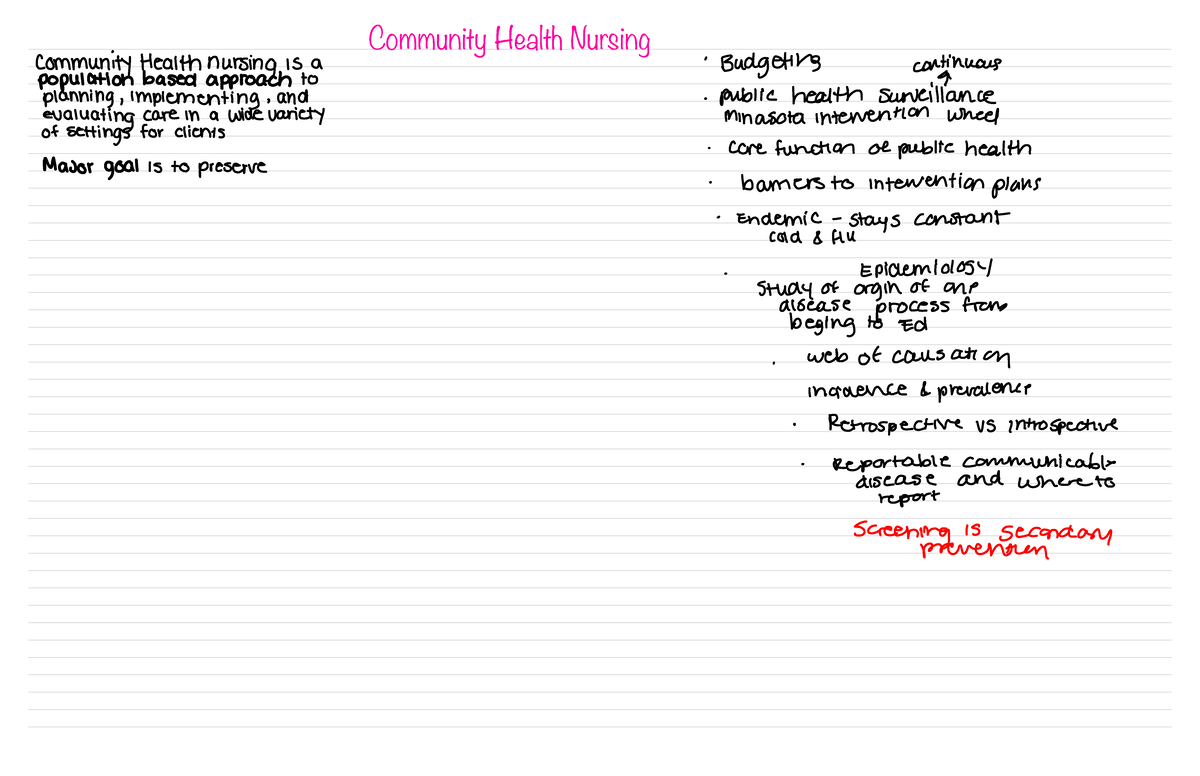 Community Health Nursing
Community Health nursing is a
population based approach to
planning, implementing, and
evaluating care in a wide variety
of settings for clients
Major goal is to preserve
· Budgeting
continuous
· public health surveillance
minasota intervention wheel
· core function of public health
· barriers to intervention plans
· Endemic - stays constant
cold & flu
· Epidemiology
Study of orgin of
disease process from
beging to Ed
· web of causation
incidence & prevalence
· Retrospective vs introspective
· Reportable communicable
disease and where to
report
Screening is secondary
prevention